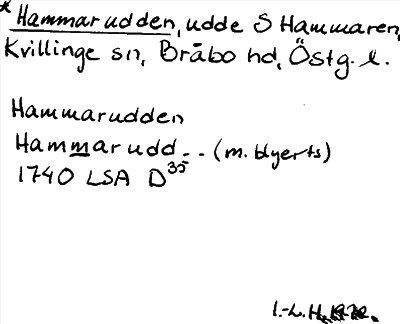 * Hammarudden, udde S Hammaren,
Kvillinge sn, Bråbo hd, Östg. l.
Hammarudden
Hammarudd - - (m. blyerts)
1740 LSA D35
I.-L. H. 1972.